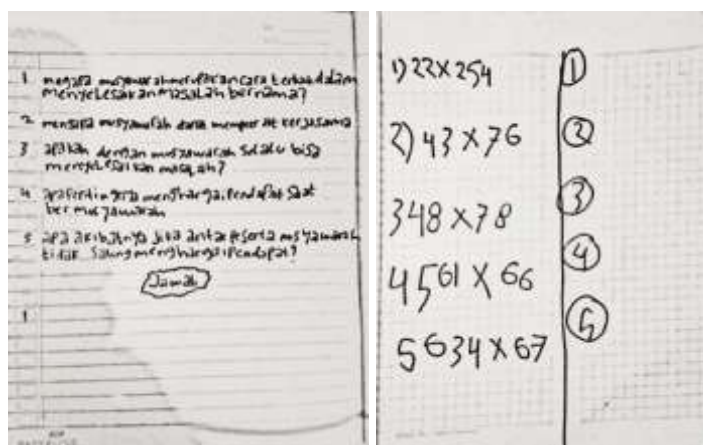 1 mengapa musyawarah merupakan cara terbaik dalam
menyelesaikan masalah bersama?
2 mengapa musyawarah dapat mempererat kerjasama
3 apakah dengan musyawarah selalu bisa
menyelesaikan masalah?
4 apa pentingnya menghargai pendapat saat
bermusyawarah
5 apa akibatnya jika antar peserta musyawarah
tidak saling menghargai pendapat?
Jawab
1
1) 22 x 254
2) 43 x 76
348 x 78
4561 x 66
5634 x 67
1
2
3
4
5